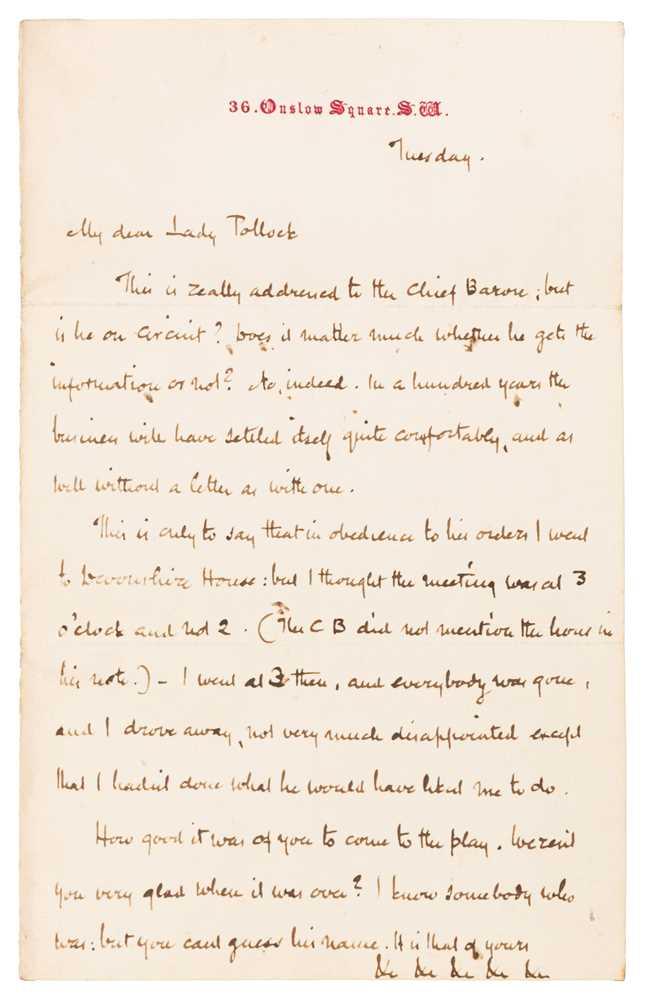 36. Onslow Square. S.W.
Tuesday.
My dear Lady Pollock
This is really addressed to the Chief Baron; but
is he on circuit? Does it matter much whether he gets the
information or not? No, indeed. In a hundred years the
business will have settled itself quite comfortably, and as
well without a letter as with one.
This is only to say that in obedience to his orders I went
to Devonshire House: but I thought the meeting was at 3
o'clock and not 2. (The C B did not mention the hour in
his note.) - I went at 3 then, and everybody was gone,
and I drove away, not very much disappointed except
that I hadn't done what he would have liked me to do.
How good it was of you to come to the play. Weren't
you very glad when it was over? I know somebody who
was: but you cant guess his name. It is that of yours
&c &c &c &c &c